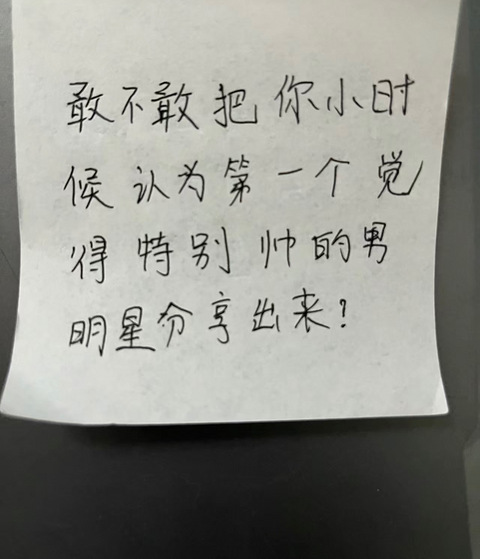 敢不敢把你小时
候认为第一个觉
得特别帅的男
明星分享出来？